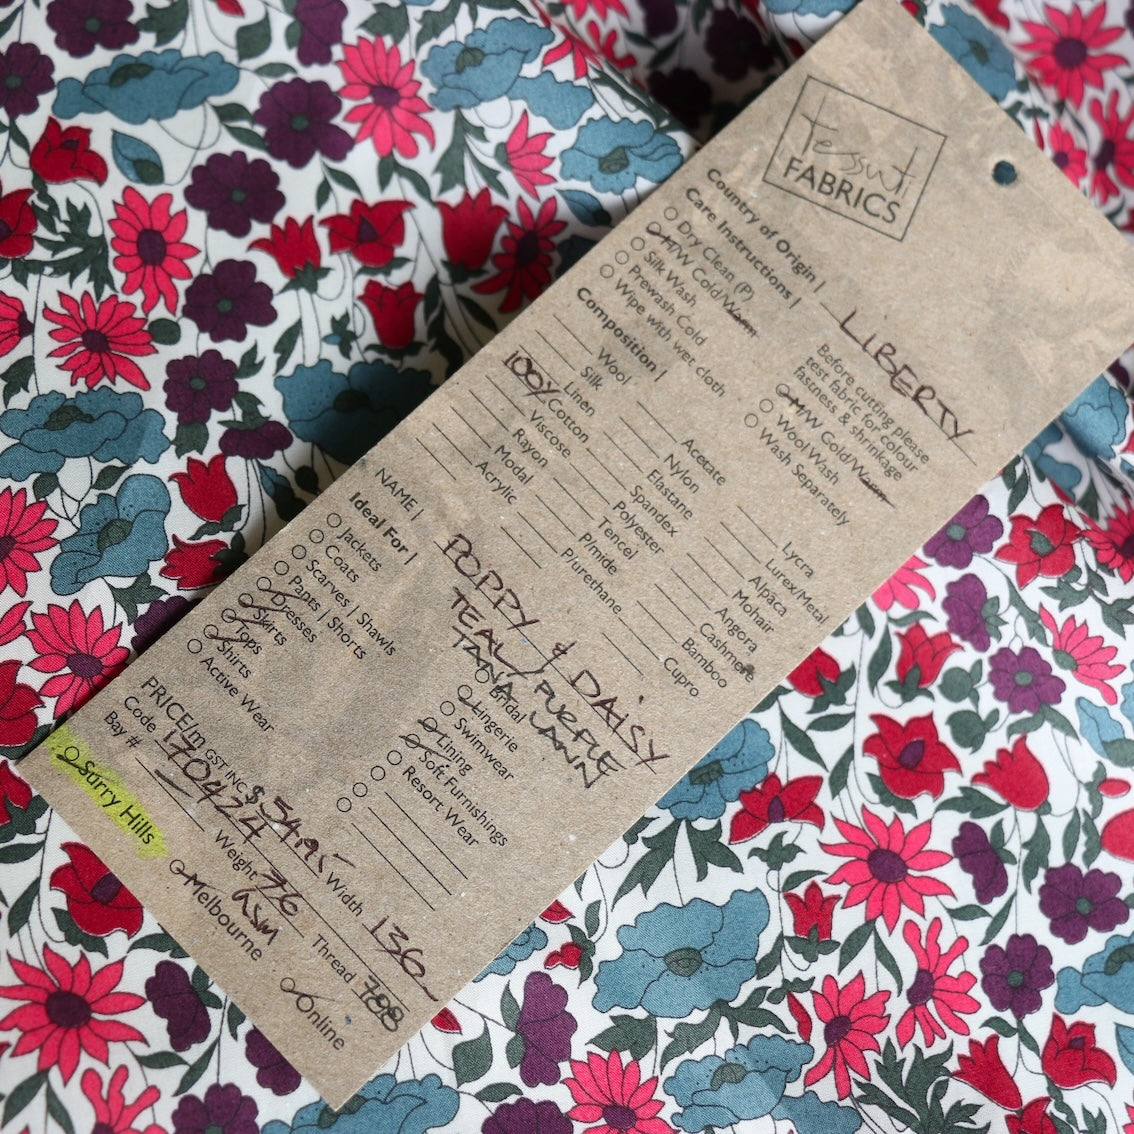 Tessuti
FABRICS
Country of Origin | LIBERTY
Care Instructions |
Dry Clean (P)
H/W Cold/Warm
Silk Wash
Prewash Cold
Wipe with wet cloth
Before cutting please
test fabric for colour
fastness & shrinkage
H/W Cold/Warm
Wool Wash
Wash Separately
Composition |
Wool
Silk
Linen
100% Cotton
Viscose
Rayon
Modal
Acrylic
Acetate
Nylon
Elastane
Spandex
Polyester
Tencel
P/mide
P/urethane
Lycra
Lurex/Metal
Alpaca
Mohair
Angora
Cashmere
Bamboo
Cupro
NAME | POPPY & DAISY
TEAL/PURPLE
TANA LAWN
Ideal For |
Jackets
Coats
Scarves | Shawls
Pants | Shorts
Dresses
Skirts
Tops
Shirts
Active Wear
Bridal
Lingerie
Swimwear
Lining
Soft Furnishings
Resort Wear
PRICE/m GST INC $54.95
Code 170424
Bay #
Weight 76 GSM
Width 136
Thread 788
Surry Hills
Melbourne
Online